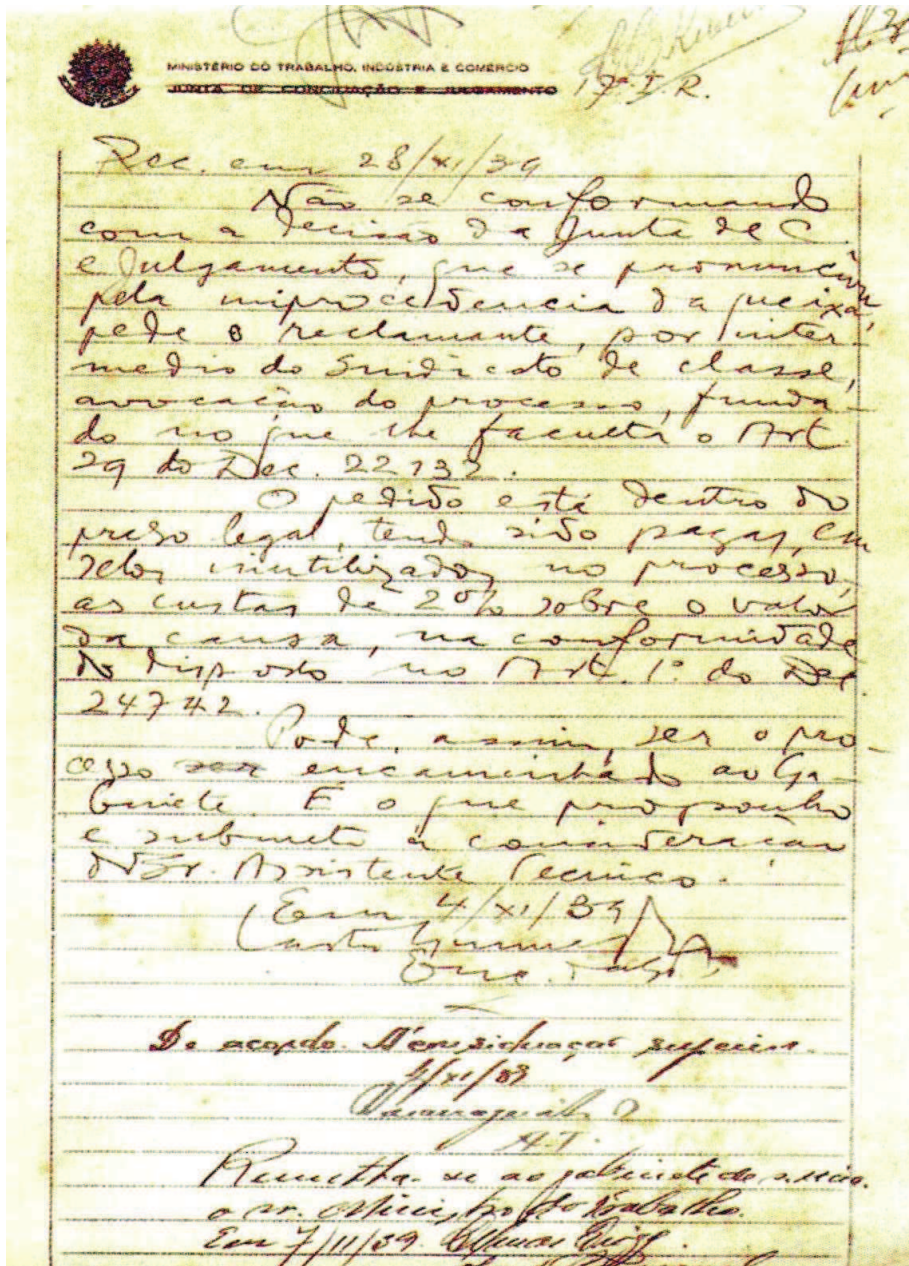 MINISTÉRIO DO TRABALHO, INDÚSTRIA E COMÉRCIO
JUNTA DE CONCILIAÇÃO E JULGAMENTO 17ª I. R.
Rec. em 28/XI/39
Não se conformando
com a decisão da Junta de C.
e Julgamento, que se pronunciou
pela improcedencia da queixa,
pede o reclamante, por inter-
medio do Sindicato de classe,
avocação do processo, funda-
do no que lhe faculta o Art.
29 do Dec. 22132.
O pedido está dentro do
praso legal, tendo sido pagas, em
selos inutilizados no processo,
as custas de 2% sobre o valor
da causa, na conformidade
do disposto no Art. 1º do Dec.
24742.
Pode, assim, ser o pro-
cesso ser encaminhado ao Ga-
binete. E o que proponho
e submeto á consideração
do Sr. Assistente Tecnico.
Em 4/XI/39
Enc.
De acordo. Á consideração superior.
/XI/39
A.T.
Remetta-se ao gabinete de s. excia.
o sr. Ministro do Trabalho.
Em 7/11/39.